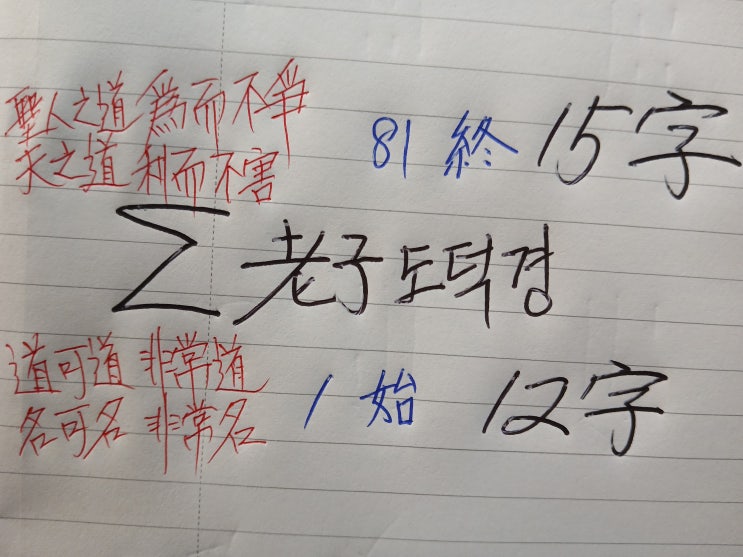 聖人之道 爲而不爭
天之道 利而不害
81 終 15字
∑老子도덕경
道可道 非常道
名可名 非常名
1 始 12字